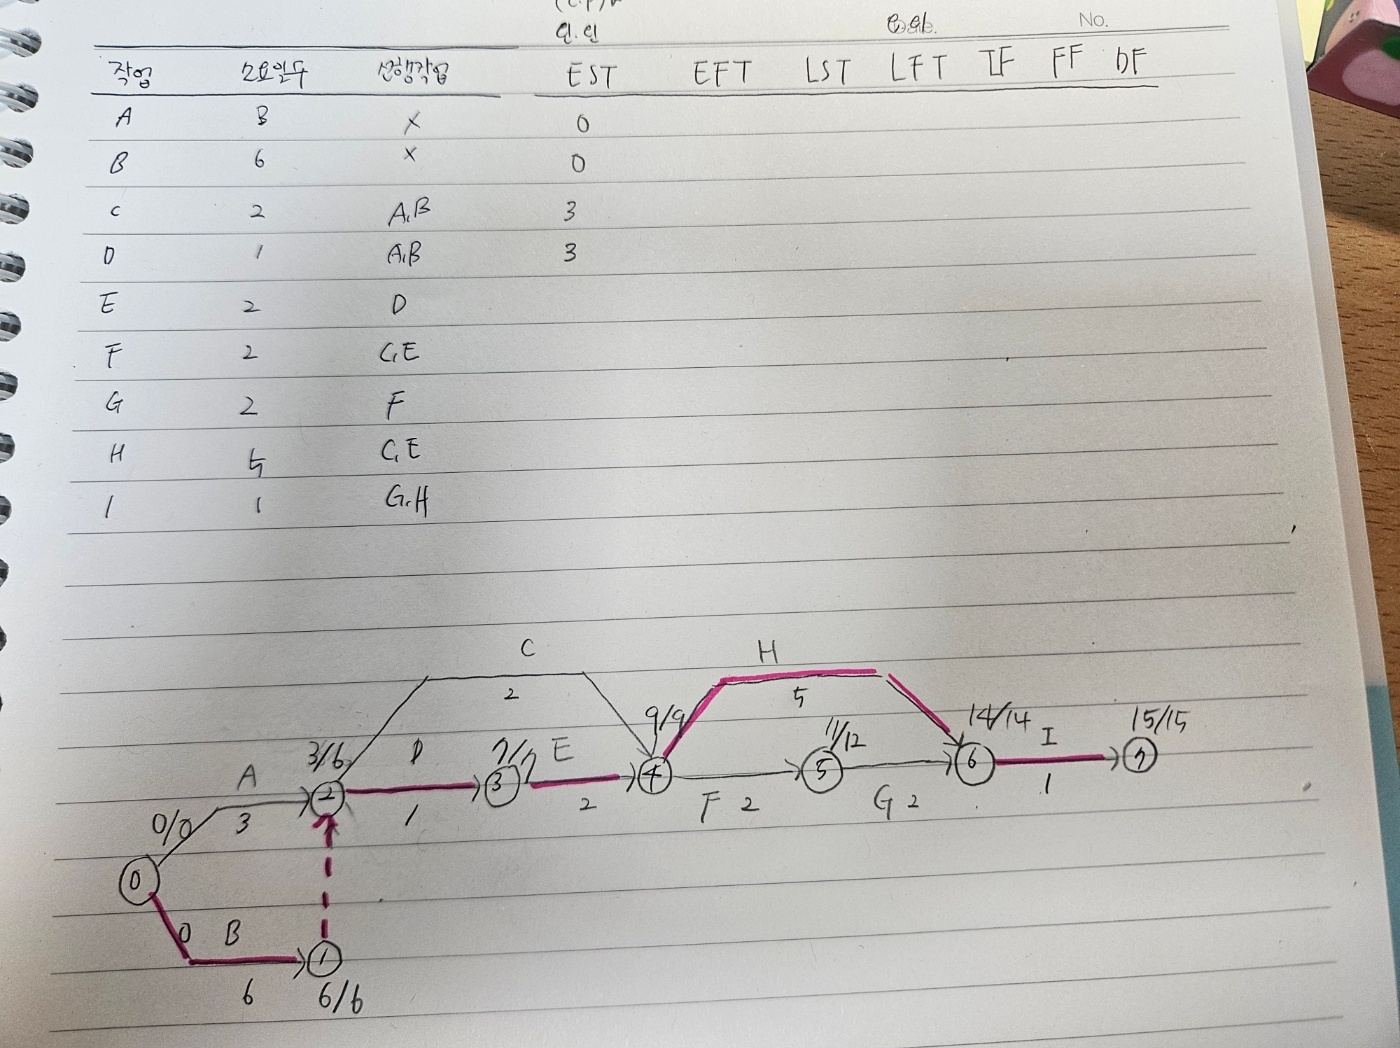 No.
작업 소요일수 선행작업 EST EFT LST LFT TF FF DF
A 3 X 0
B 6 X 0
C 2 A,B 3
D 1 A,B 3
E 2 D
F 2 C,E
G 2 F
H 5 C,E
I 1 G,H
C
2
H
5
9/9
14/14
I
1
15/15
3/6
D
1
7/7
E
2
11/12
A
3
0/0
2
3
4
F 2
5
G 2
6
7
0
0 B
6
1
6/6